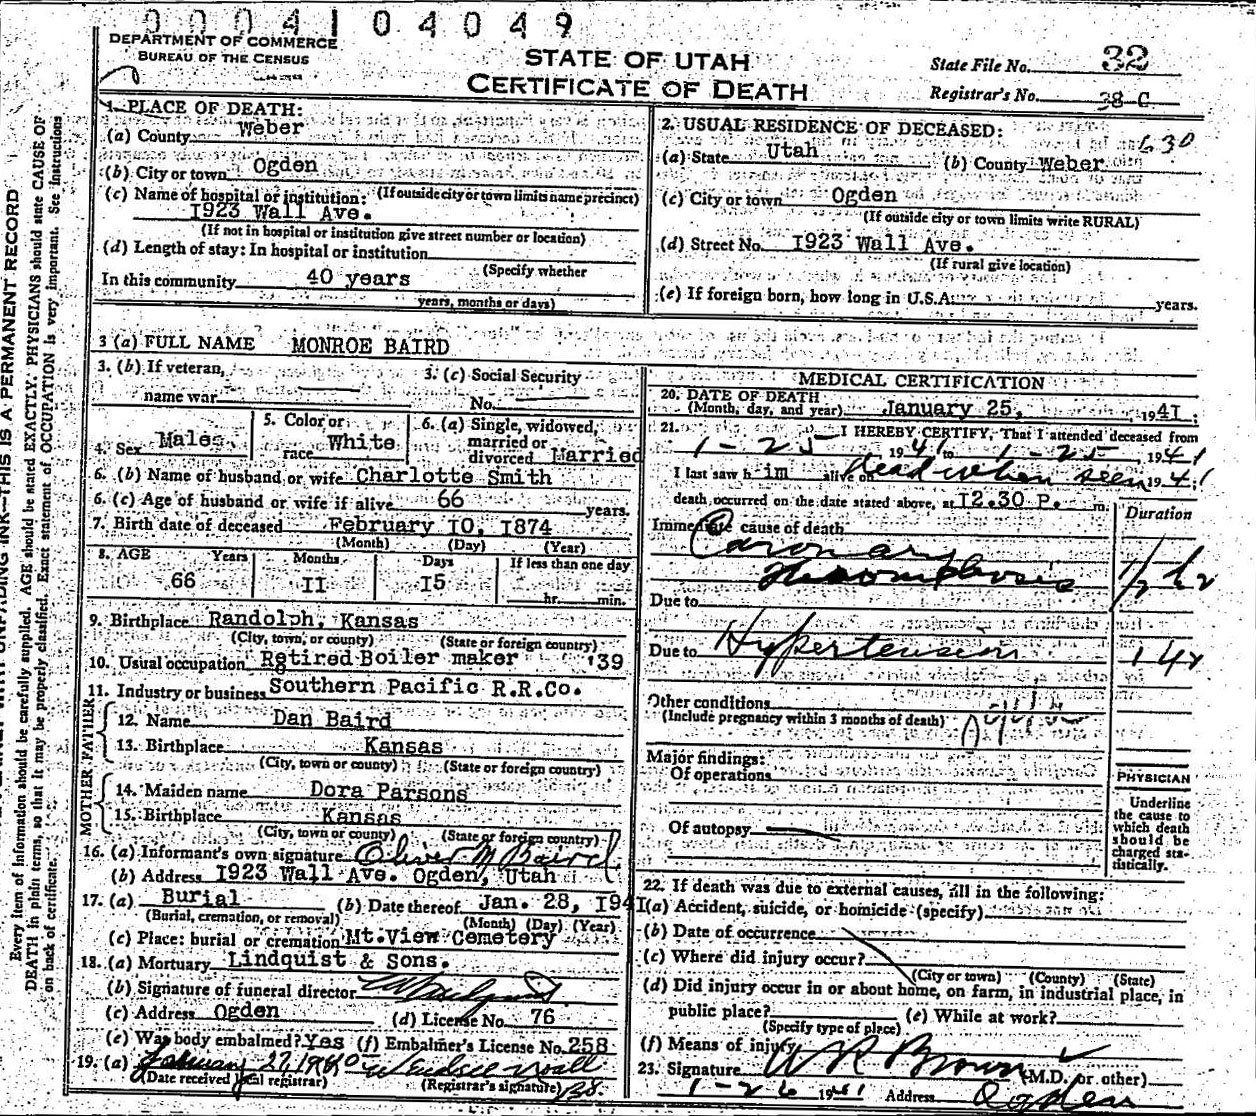 0004104049
DEPARTMENT OF COMMERCE
BUREAU OF THE CENSUS
STATE OF UTAH
CERTIFICATE OF DEATH
State File No. 32
Registrar's No. 38-C
1. PLACE OF DEATH:
(a) County Weber
(b) City or town Ogden
(c) Name of hospital or institution: (If outside city or town limits name precinct)
1923 Wall Ave.
(If not in hospital or institution give street number or location)
(d) Length of stay: In hospital or institution
(Specify whether
In this community 40 years
years, months or days)
2. USUAL RESIDENCE OF DECEASED: 630
(a) State Utah (b) County Weber
(c) City or town Ogden
(If outside city or town limits write RURAL)
(d) Street No. 1923 Wall Ave.
(If rural give location)
(e) If foreign born, how long in U.S.A. years.
3 (a) FULL NAME MONROE BAIRD
3. (b) If veteran,
name war
3. (c) Social Security
No.
4. Sex Male
5. Color or
race White
6. (a) Single, widowed,
married or
divorced Married
6. (b) Name of husband or wife Charlotte Smith
6. (c) Age of husband or wife if alive 66 years.
7. Birth date of deceased February 10, 1874
(Month) (Day) (Year)
8. AGE Years Months Days If less than one day
66 11 15 hr. min.
9. Birthplace Randolph, Kansas
(City, town, or county) (State or foreign country)
10. Usual occupation Retired Boiler maker '39
11. Industry or business Southern Pacific R.R.Co.
FATHER
12. Name Dan Baird
13. Birthplace Kansas
(City, town or county) (State or foreign country)
MOTHER
14. Maiden name Dora Parsons
15. Birthplace Kansas
(City, town or county) (State or foreign country)
16. (a) Informant's own signature Oliver M Baird
(b) Address 1923 Wall Ave. Ogden, Utah
17. (a) Burial (b) Date thereof Jan. 28, 1941
(Burial, cremation, or removal) (Month) (Day) (Year)
(c) Place: burial or cremation Mt.View Cemetery
18. (a) Mortuary Lindquist & Sons.
(b) Signature of funeral director
(c) Address Ogden (d) License No. 76
(e) Was body embalmed? Yes (f) Embalmer's License No. 258
19. (a) 27, 1940
(Date received local registrar) (Registrar's signature)
MEDICAL CERTIFICATION
20. DATE OF DEATH
(Month, day, and year) January 25, 1941
21. I HEREBY CERTIFY, That I attended deceased from
1-25 1941 to 1-25, 1941
I last saw him alive on dead when seen 1941
death occurred on the date stated above, at 12.30 P. m.
Duration
Immediate cause of death
Coronary
Thrombosis 1/2 hr
Due to
Due to Hypertension 1 yr
Other conditions
(Include pregnancy within 3 months of death)
Major findings:
Of operations
Of autopsy
PHYSICIAN
Underline
the cause to
which death
should be
charged sta-
tistically.
22. If death was due to external causes, fill in the following:
(a) Accident, suicide, or homicide (specify)
(b) Date of occurrence
(c) Where did injury occur?
(City or town) (County) (State)
(d) Did injury occur in or about home, on farm, in industrial place, in
public place? (e) While at work?
(Specify type of place)
(f) Means of injury
23. Signature W R Brown (M.D. or other)
1-26 1941 Address Ogden
THIS IS A PERMANENT RECORD
Every item of information should be carefully supplied. AGE should be stated EXACTLY. PHYSICIANS should state CAUSE OF
DEATH in plain terms, so that it may be properly classified. Exact statement of OCCUPATION is very important. See instructions
on back of certificate.